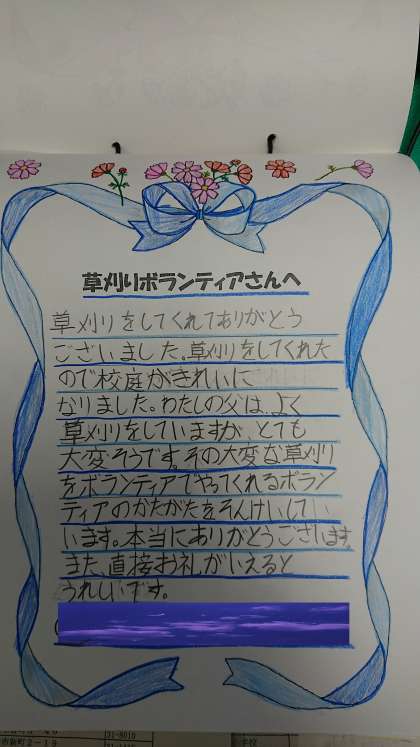 草刈りボランティアさんへ
草刈りをしてくれてありがとう
ございました。草刈りをしてくれた
ので校庭がきれいに
なりました。わたしの父は、よく
草刈りをしていますが、とても
大変そうです。その大変な草刈り
をボランティアでやってくれるボラン
ティアのかたがたをそんけいしてい
います。本当にありがとうございます。
また、直接お礼がいえると
うれしいです。
31-8010
市新町2-19